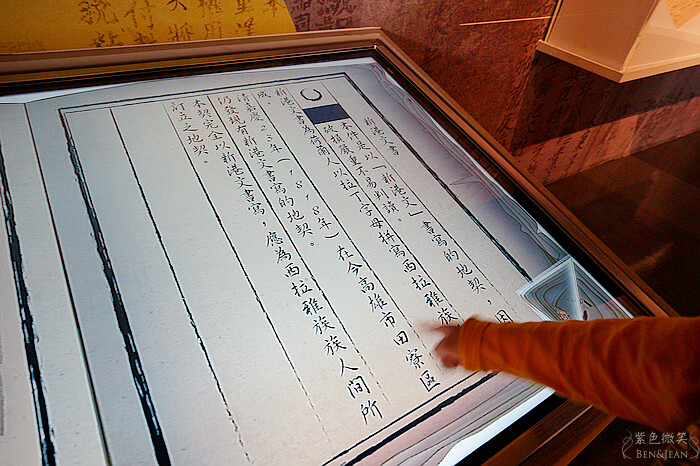 新港文書
本件是以「新港文」書寫的地契，因
破損嚴重不易判讀。
新港文書為荷蘭人以拉丁字母拼寫西拉雅族
成。
清嘉慶23年(1818年)在今高雄市田寮區
仍發現有新港文書寫的地契。
本契完全以新港文書寫，應為西拉雅族族人間所
訂立之地契。
紫色微笑
BEN&JEAN